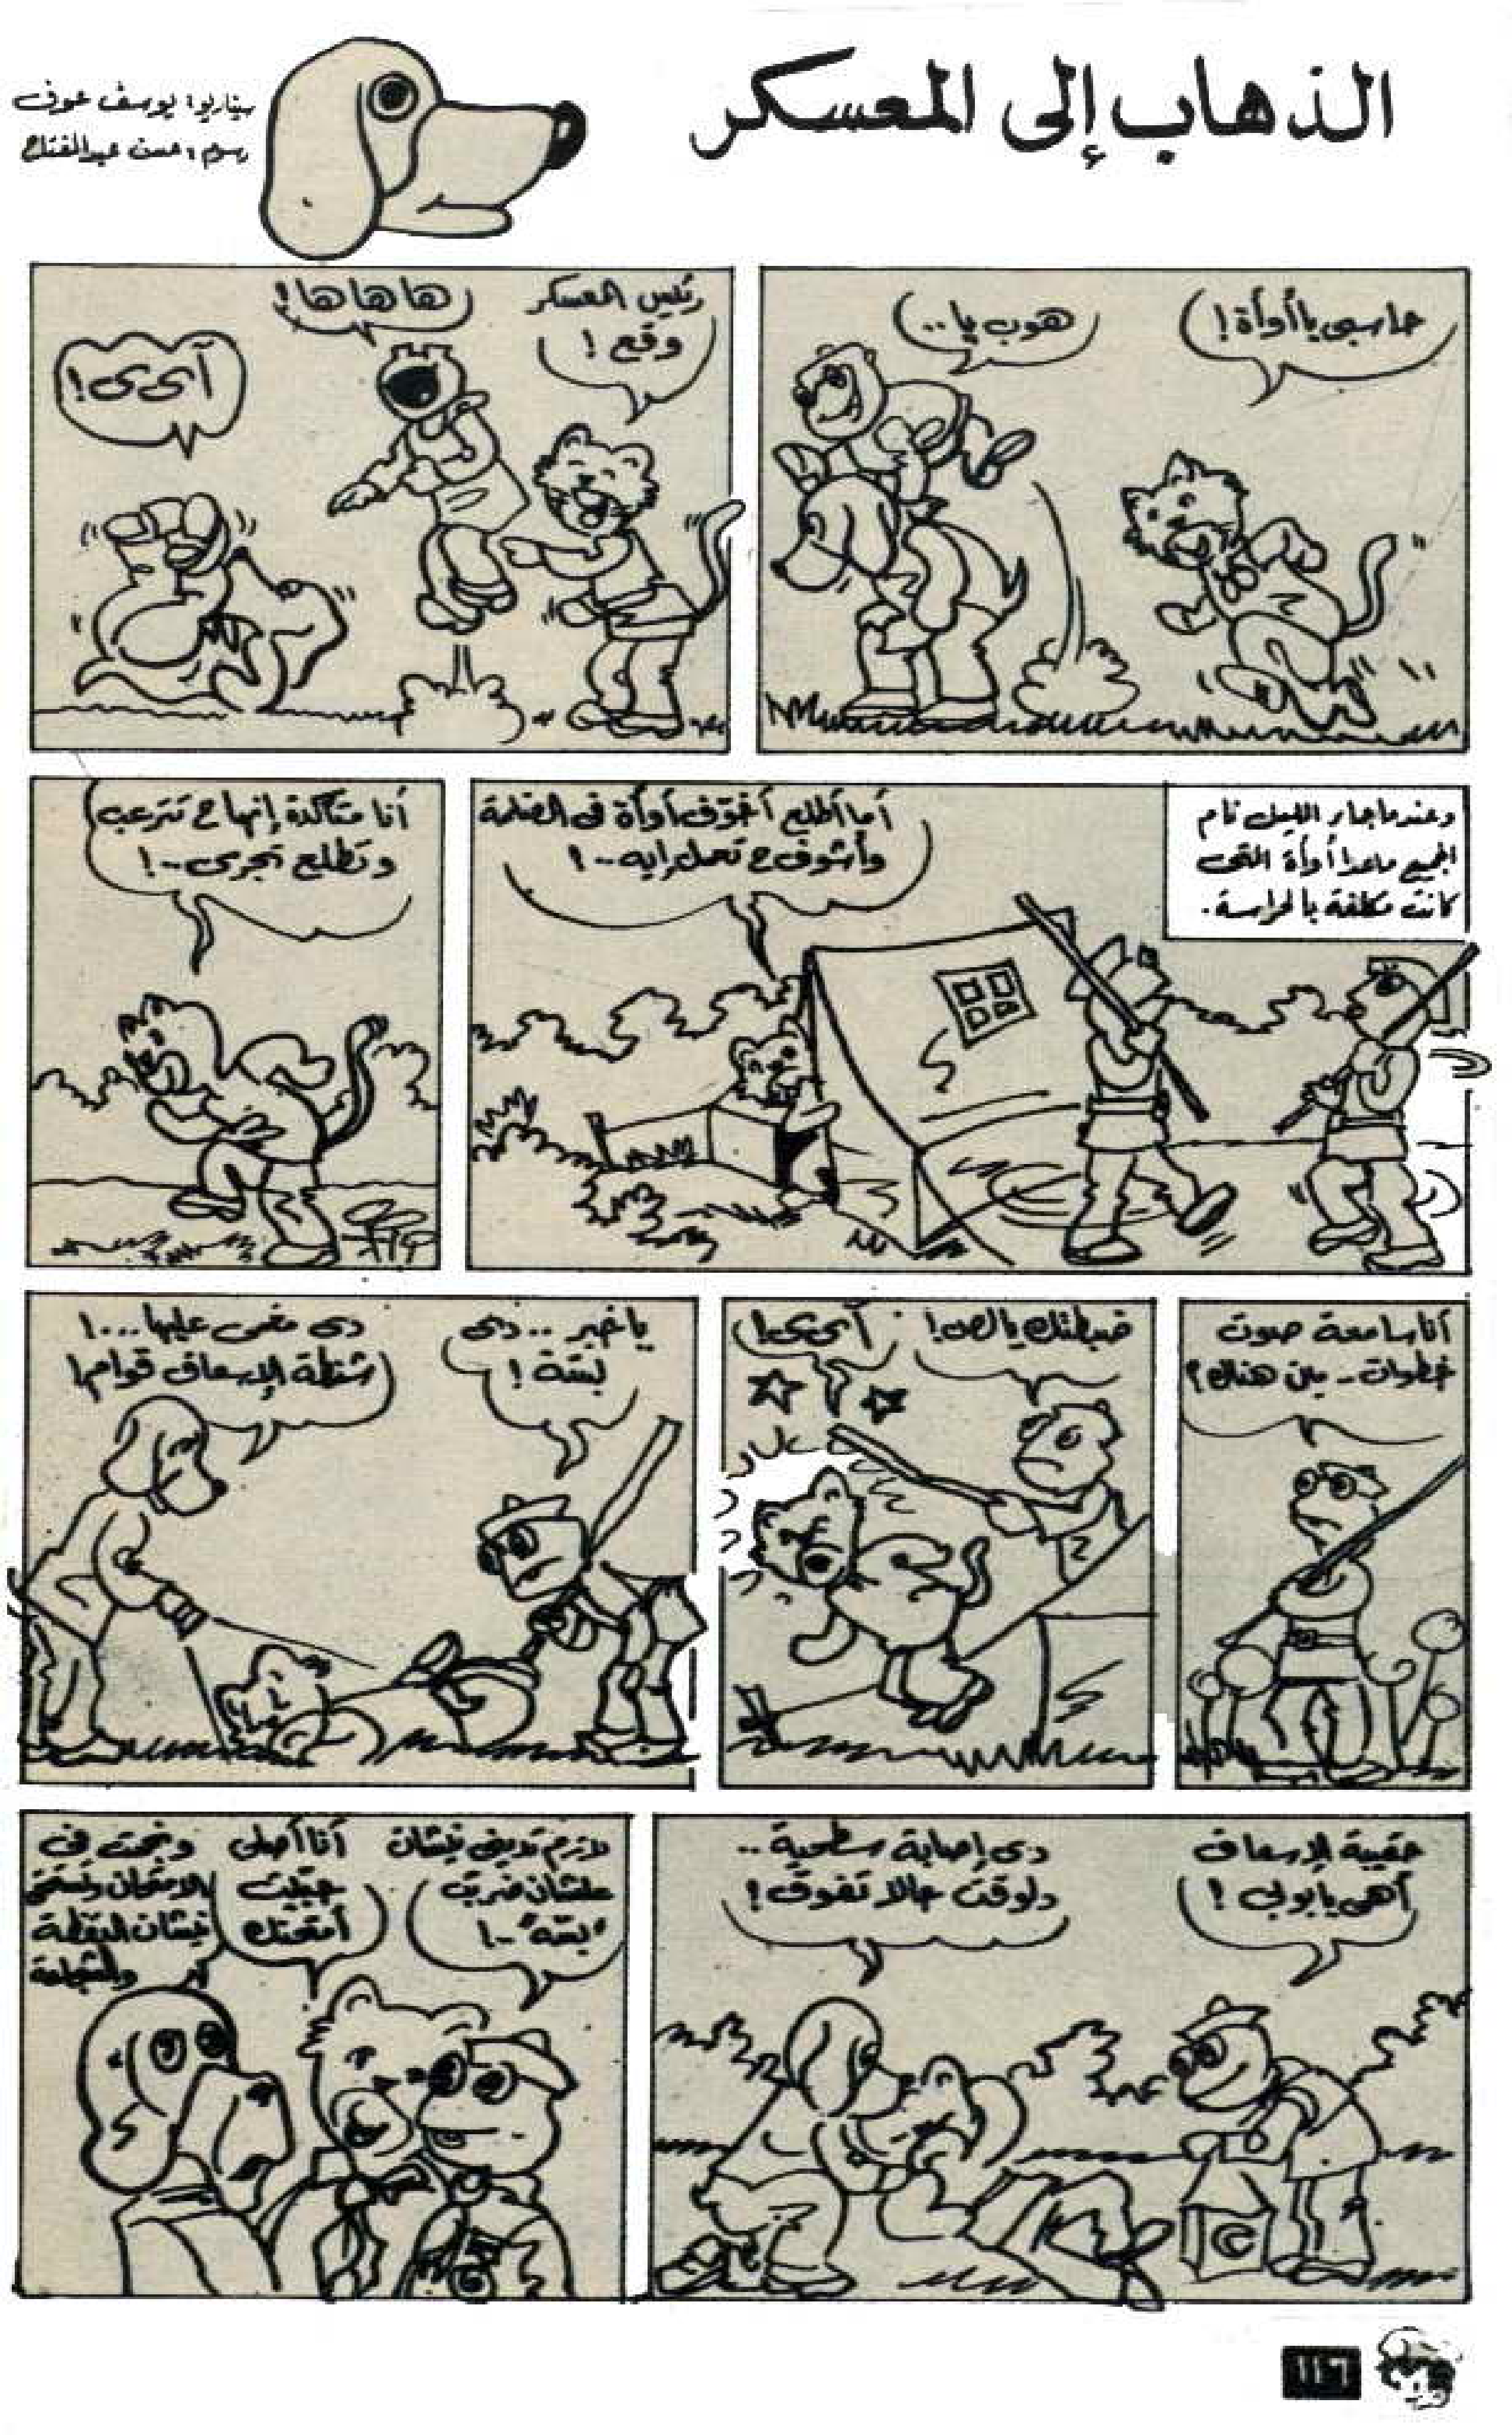 الذهاب إلى المعسكر
سيناريو: يوسف عوف
رسوم: حسن عبدالفتاح
حاسبى يا أوأة!
هوب يا..
رئيس المعسكر
وقع!
ها ها ها!
آى ى!
وعندما جاء الليل نام
الجميع ماعدا أوأة التى
كانت مكلفة بالحراسة.
أما أطلع أخوّف أوأة فى الضلمة
وأشوف ح تعمل إيه..!
أنا متأكدة إنها ح تترعب
وتطلع تجرى..!
أنا سامعة صوت
خطوات.. مين هناك؟
ضبطتك يا لص!
آى ى!
يا خبر.. دى
بسّة!
دى مغمى عليها...!
شنطة الإسعاف قوام!
حقيبة الإسعاف
أهى يا بوبى!
دى إصابة سطحية..
دلوقت حالا تفوق!
لازم تديهنى نيشان
علشان ضربت
"بسّة"..!
أنا أصلى
حبيت
أمتحنك
ونجحت فى
الامتحان وتستحقى
نيشان اليقظة
والشجاعة
١١٦